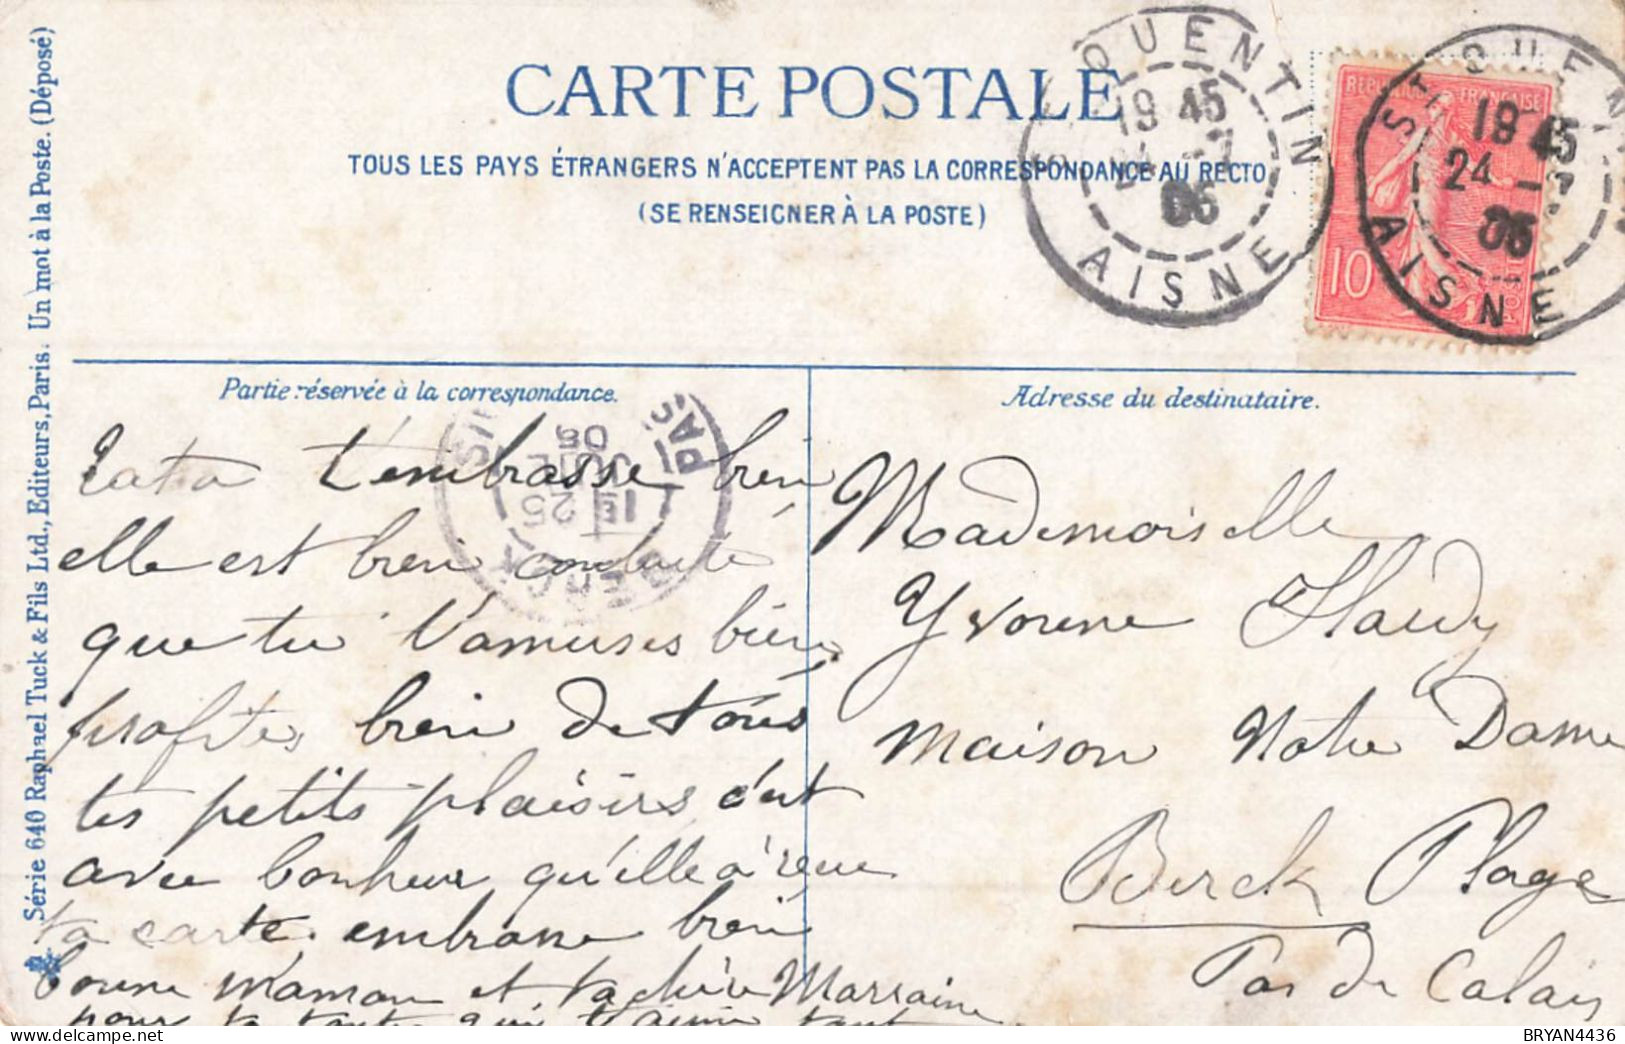 CARTE POSTALE
TOUS LES PAYS ÉTRANGERS N'ACCEPTENT PAS LA CORRESPONDANCE AU RECTO
(SE RENSEIGNER À LA POSTE)
ST QUENTIN
19 45
24 -7
06
AISNE
REPUBLIQUE FRANÇAISE
10
ST QUENTIN
19 45
24 -7
06
AISNE
Série 640 Raphael Tuck & Fils Ltd., Editeurs, Paris. Un mot à la Poste. (Déposé)
Partie réservée à la correspondance.
Adresse du destinataire.
Tata t'embrasse bien
elle est bien contente
que tu t'amuses bien,
profites bien de tous
tes petits plaisirs c'est
avec bonheur qu'elle a reçu
ta carte. embrasse bien
bonne maman et ta chère Marraine
pour ta tante qui t'aime tant
BERCK
1E 25
JUIL
05
PAS
Mademoiselle
Yvonne Flandy
maison Notre Dame
Berck Plage
Pas de Calais
BRYAN4436